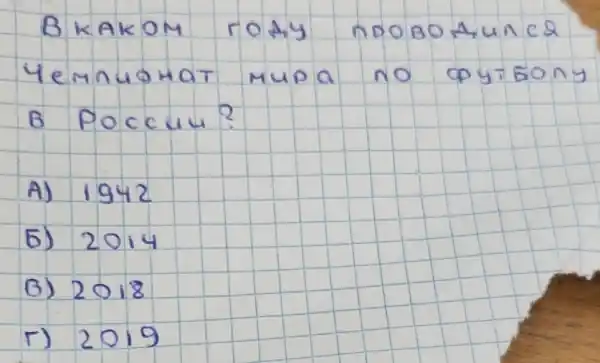 В каком году проводился
Чемпионат мира по футболу
в России?
А) 1942
Б) 2014
В) 2018
Г) 2019